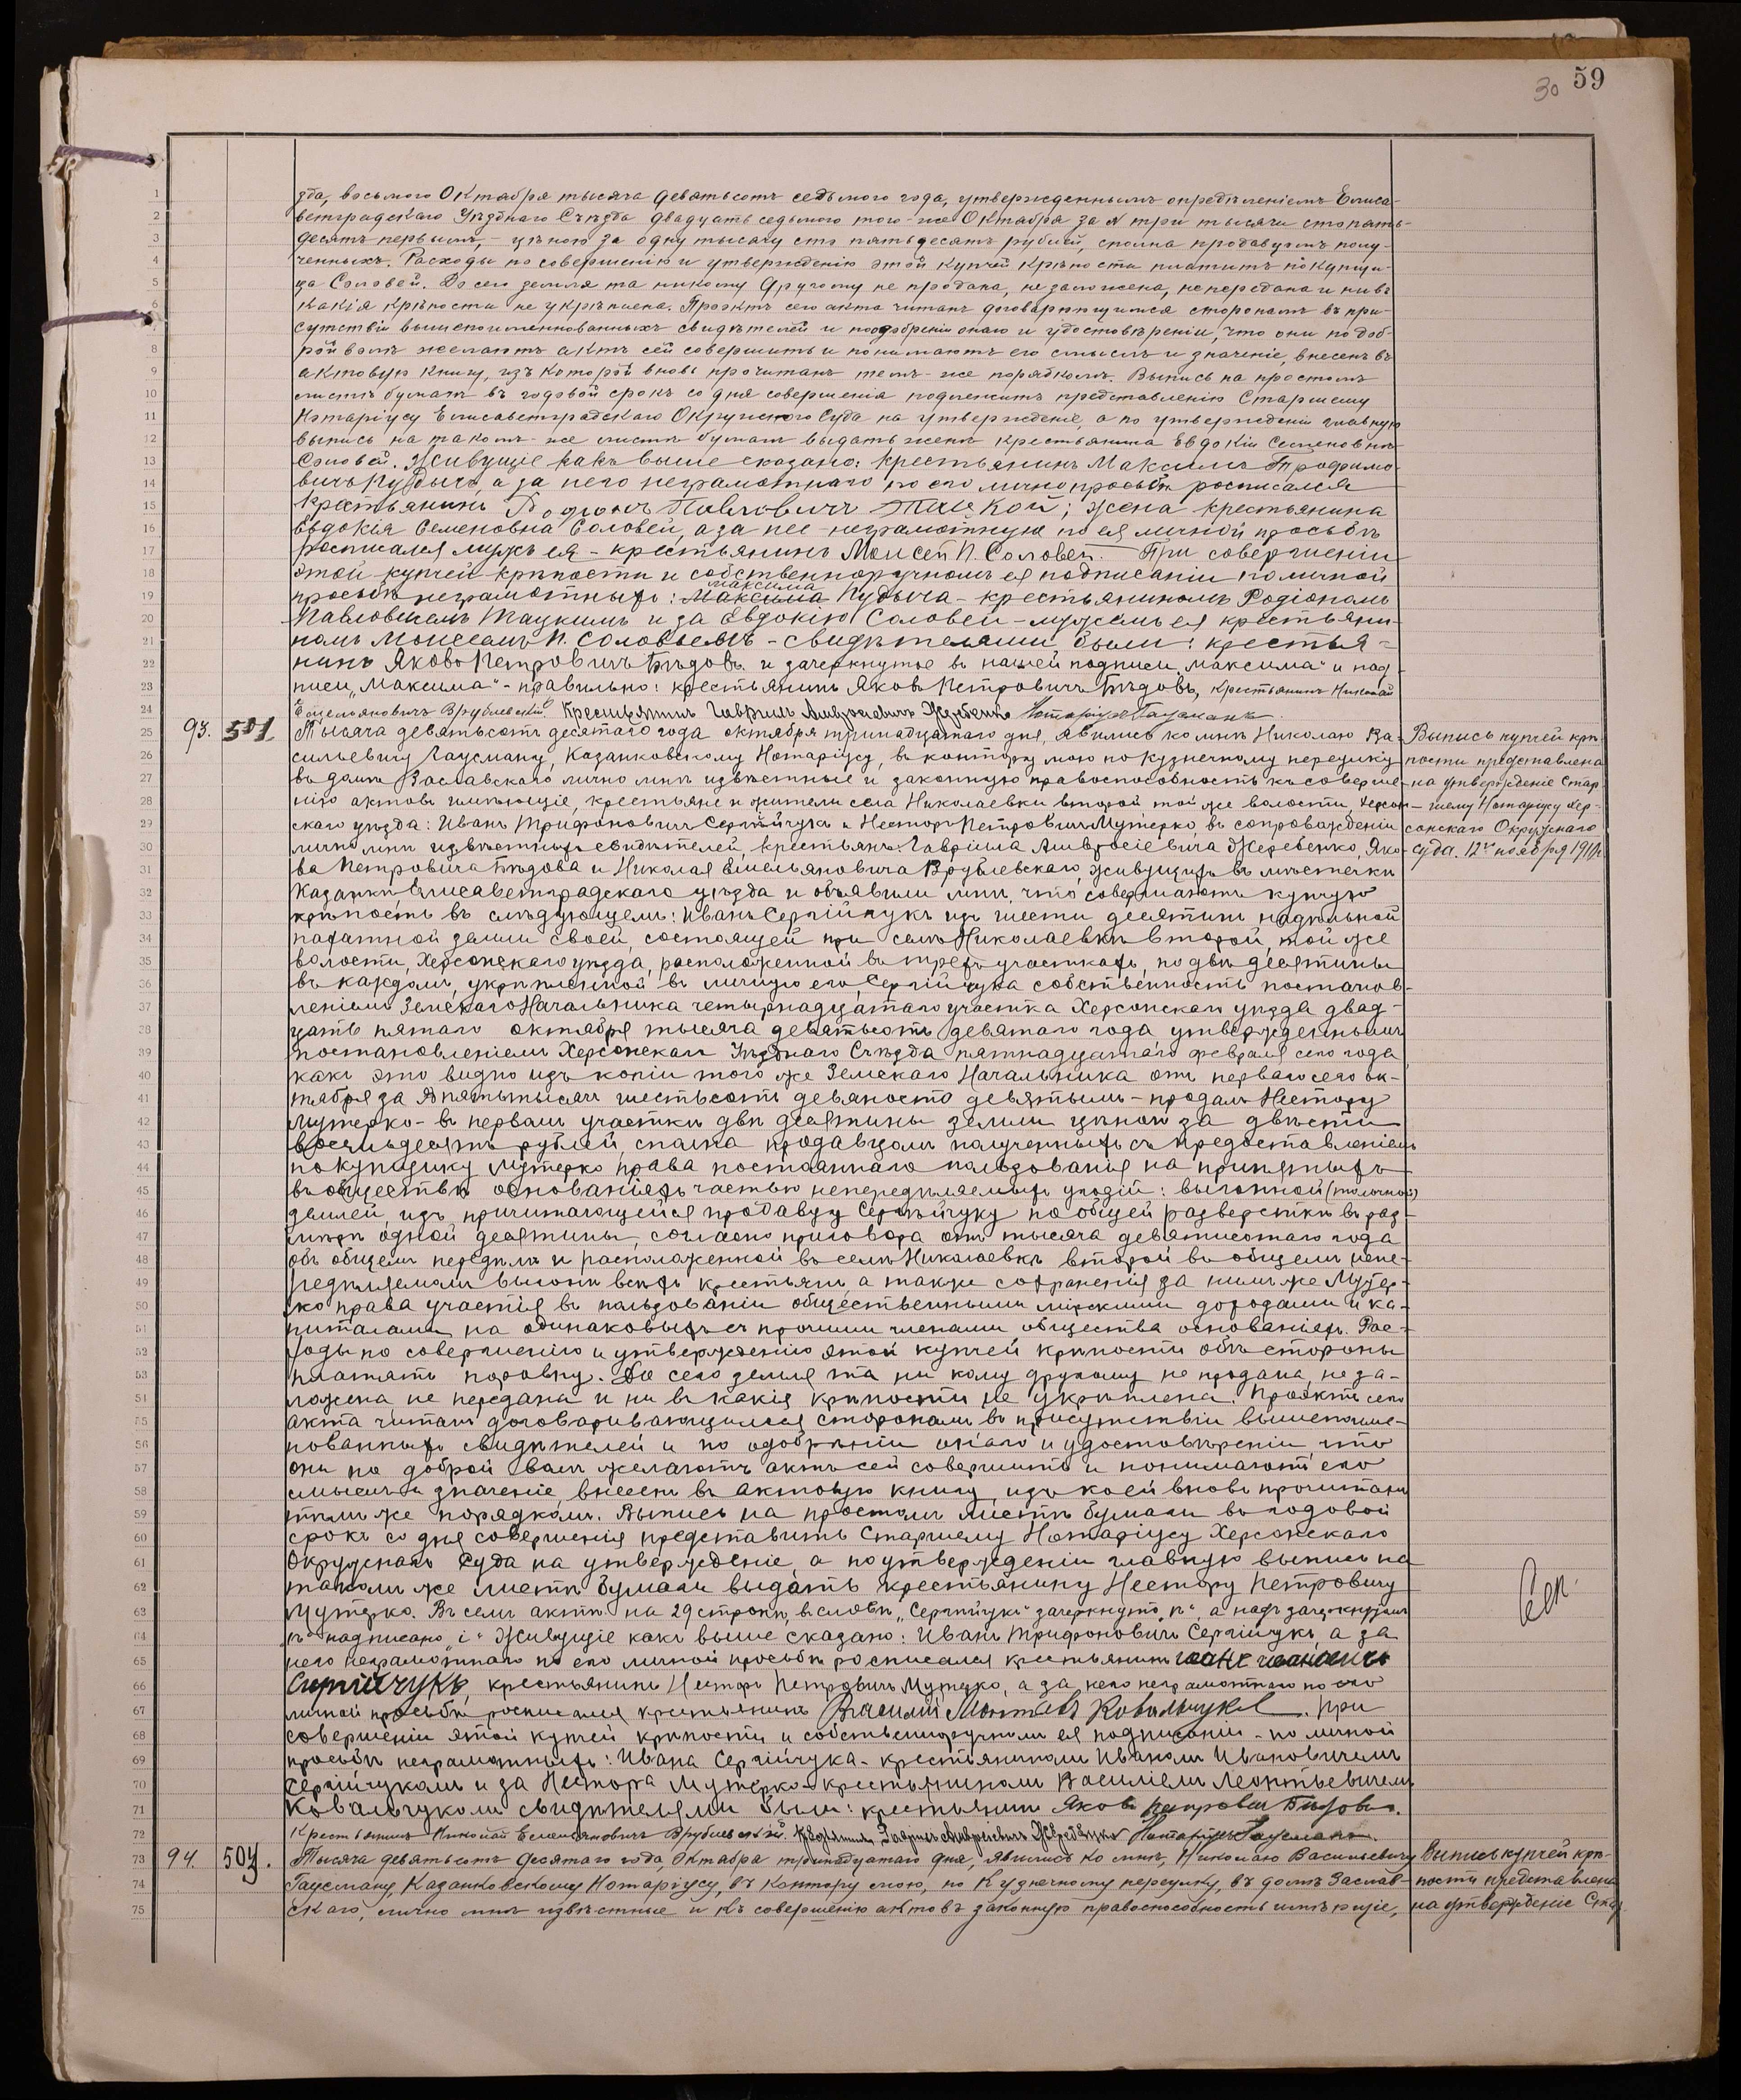 30 59
зда, восьмого Октября тысяча девятьсотъ седьмого года, утвержденнымъ опредѣленіемъ Елиса-
ветградскаго Уѣзднаго Съѣзда двадцать седьмого того-же Октября за № три тысячи сто пять-
десятъ первымъ, - цѣною за одну тысячу сто пятьдесятъ рублей, сполна продавцомъ полу-
ченныхъ. Расходы по совершенію и утвержденію этой купчей крѣпости платитъ покупщи-
ца Соловей. До сего земля та никому другому не продана, не заложена, не передана и ни въ
какія крѣпости не укрѣплена. Проэктъ сего акта читанъ договаривающимся сторонамъ въ при-
сутствіи вышепоименнованныхъ свидѣтелей и по одобреніи онаго и удостовѣреніи, что они по доб-
рой волѣ желаютъ актъ сей совершить и понимаютъ его смыслъ и значеніе, внесенъ въ
актовую книгу, изъ которой вновь прочитанъ тѣмъ-же порядкомъ. Выпись на простомъ
листѣ бумаги въ годовой срокъ со дня совершенія подлежитъ представленію Старшему
Нотаріусу Елисаветградскаго Окружного Суда на утвержденіе, а по утвержденіи главную
выпись на такомъ-же листѣ бумаги выдать женѣ крестьянина Евдокіи Семеновнѣ
Соловей. Живущіе какъ выше сказано: крестьянинъ Максимъ Трофимо-
вичъ Кудыча, а за него неграмотнаго по его личной просьбѣ росписался
крестьянинъ Родіонъ Павловичъ Тацкой; жена крестьянина
Евдокія Семеновна Соловей, а за нее неграмотную по ея личной просьбѣ
росписался мужъ ея - крестьянинъ Моисей П. Соловей. При совершеніи
этой купчей крѣпости и собственноручномъ ея подписаніи по личной
Максима
просьбѣ неграмотныхъ: Максима Кудыча - крестьяниномъ Родіономъ
Павловичемъ Тацкимъ и за Евдокію Соловей - мужемъ ея крестьяни-
номъ Моисеемъ П. Соловьемъ - свидѣтелями были: крестья-
нинъ Яковъ Петровичъ Бѣдовъ. и зачеркнутое въ нашей подписи „Максима" и над-
писи „Максима" - правильно: крестьянинъ Яковъ Петровичъ Бѣдовъ, Крестьянинъ Николай
Емельяновичъ Врублевскій. Крестьянинъ Гавріилъ Амвросіевичъ Жеребенко Нотаріусъ Гаусманъ
93. 501. Тысяча девятьсотъ десятаго года октября тринадцатаго дня, явились ко мнѣ Николаю Ва- Выпись купчей крѣ-
сильевичу Гаусману, Казанковскому Нотаріусу, въ контору мою по Кузнечному переулку пости представлена
въ домѣ Заславскаго лично мнѣ извѣстные и законную правоспособность къ соверше- на утвержденіе Стар-
нію актовъ имѣющіе, крестьяне и жители села Николаевки второй той же волости, Херсон- шему Нотаріусу Хер-
скаго уѣзда: Иванъ Трифоновичъ Сергійчукъ и Несторъ Петровичъ Мутерко, въ сопровожденіи сонскаго Окружнаго
лично мнѣ извѣстныхъ свидѣтелей, крестьянъ: Гавріила Амвросіевича Жеребенко, Яко- Суда. 12го ноября 1910г.
ва Петровича Бѣдова и Николая Емельяновича Врублевскаго, живущихъ въ мѣстечкѣ
Казанкѣ, Елисаветградскаго уѣзда и объявили мнѣ, что совершаютъ купчую
крѣпость въ слѣдующемъ: Иванъ Сергійчукъ изъ шести десятинъ надѣльной
пахатной земли своей, состоящей при селѣ Николаевкѣ второй, той же
волости, Херсонскаго уѣзда, расположенной въ трехъ участкахъ, по двѣ десятины
въ каждомъ, укрѣпленной въ личную его, Сергійчука собственность постанов-
леніемъ Земскаго Начальника четырнадцатаго участка Херсонскаго уѣзда двад-
цать пятаго октября тысяча девятьсотъ девятаго года утвержденнымъ
постановленіемъ Херсонскаго Уѣзднаго Съѣзда пятнадцатаго февраля сего года
какъ это видно изъ копіи того же Земскаго Начальника отъ перваго сего ок-
тября за № пять тысячъ шестьсотъ девяносто девятымъ - продалъ Нестору
Мутерко - въ первомъ участкѣ двѣ десятины земли цѣною за двѣсти
восемьдесятъ рублей, сполна продавцомъ полученныхъ съ предоставленіемъ
покупщику Мутерко права постояннаго пользованія на принятыхъ
въ обществѣ основаніяхъ частью непередѣляемыхъ угодій: выгонной (толочной)
землей, изъ причитающейся продавцу Сергійчуку по общей разверсткѣ въ раз-
мѣрѣ одной десятины, согласно приговора отъ тысяча девятисотаго года
объ общемъ передѣлѣ и расположенной въ селѣ Николаевкѣ второй въ общемъ непе-
редѣляемомъ выгонѣ всѣхъ крестьянъ, а также сохраненія за нимъ же Мутер-
ко права участія въ пользованіи общественными мірскими доходами и ка-
питалами на одинаковыхъ съ прочими членами общества основаніяхъ. Рас-
ходы по совершенію и утвержденію этой купчей крѣпости обѣ стороны
платятъ поровну. До сего земля та ни кому другому не продана, не за-
ложена, не передана и ни въ какія крѣпости не укрѣплена. Проэктъ сего
акта читанъ договаривающимся сторонамъ въ присутствіи вышепоиме-
нованныхъ свидѣтелей и по одобреніи онаго и удостовѣреніи, что
они по доброй волѣ желаютъ актъ сей совершить и понимаютъ его
смыслъ и значеніе внесенъ въ актовую книгу, изъ коей вновь прочитанъ
тѣмъ же порядкомъ. Выпись на простомъ листѣ бумаги въ годовой
срокъ со дня совершенія представить Старшему Нотаріусу Херсонскаго
Окружнаго Суда на утвержденіе, а по утвержденіи главную выпись на
такомъ же листѣ бумаги выдать крестьянину Нестору Петровичу
Мутерко. Въ семъ актѣ на 29 строкѣ, въ словѣ „Сергѣйчукъ" зачеркнуто „ѣ", а надъ зачеркнутымъ
„ѣ" надписано „і" Живущіе какъ выше сказано: Иванъ Трифоновичъ Сергійчукъ, а за
него неграмотнаго по его личной просьбѣ росписался крестьянинъ Иванъ Ивановичъ
Сергійчукъ, крестьянинъ Несторъ Петровичъ Мутерко, а за него неграмотнаго по его
личной просьбѣ росписался крестьянинъ Василій Ковальчукъ. При
совершеніи этой купчей крѣпости и собственноручномъ ея подписаніи - по личной
просьбѣ неграмотныхъ: Ивана Сергійчука - крестьяниномъ Иваномъ Ивановичемъ
Сергійчукомъ и за Нестора Мутерко - крестьяниномъ Василіемъ Леонтьевичемъ
Ковальчукомъ свидѣтелями были: крестьянинъ Яковъ Петровичъ Бѣдовъ.
Крестьянинъ Николай Емельяновичъ Врублевскій. Крестьянинъ Гавріилъ Амвросіевичъ Жеребенко Нотаріусъ Гаусманъ.
94. 502. Тысяча девятьсотъ десятаго года, Октября тринадцатаго дня, явились ко мнѣ, Николаю Васильевичу Выпись купчей крѣ-
Гаусману, Казанковскому Нотаріусу, въ контору мою, по Кузнечному переулку, въ домѣ Заслав- пости представлена
скаго, лично мнѣ извѣстные и къ совершенію актовъ законную правоспособность имѣющіе, на утвержденіе Стар-